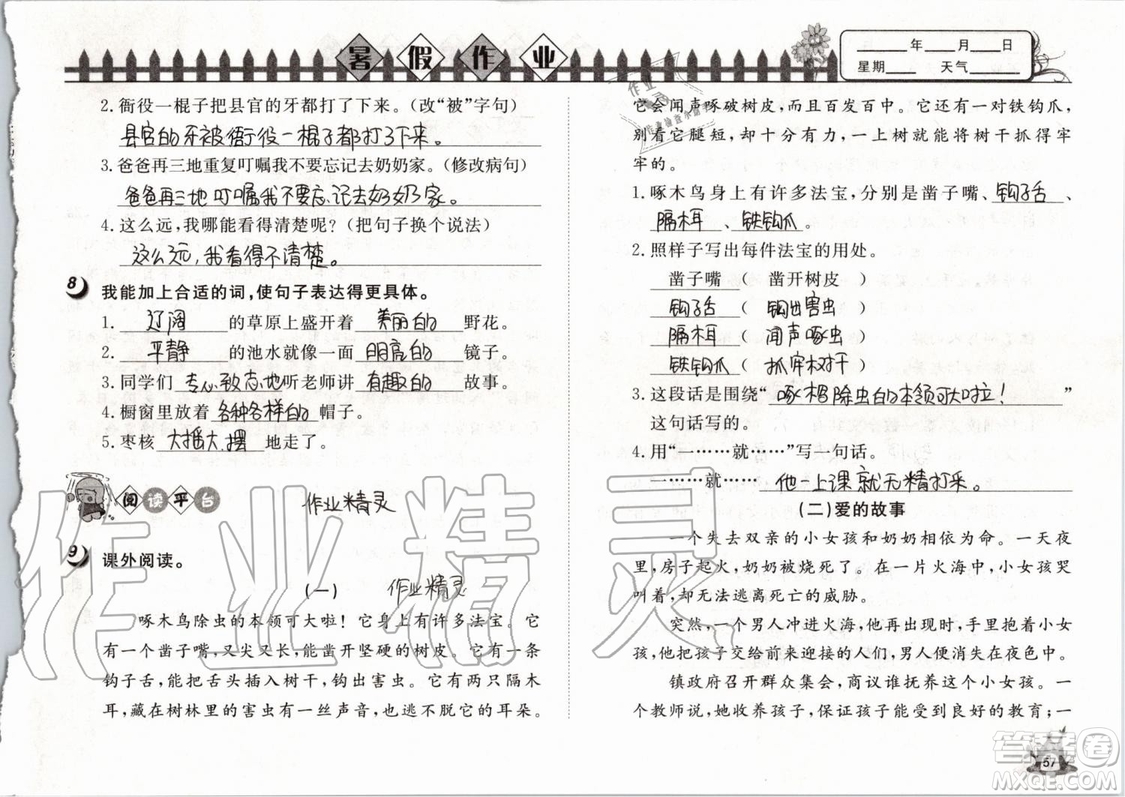 暑假作业
____年____月____日
星期____ 天气____
2.衙役一棍子把县官的牙都打了下来。（改“被”字句）
县官的牙被衙役一棍子都打了下来。
3.爸爸再三地重复叮嘱我不要忘记去奶奶家。（修改病句）
爸爸再三地叮嘱我不要忘记去奶奶家。
4.这么远，我哪能看得清楚呢？（把句子换个说法）
这么远，我看得不清楚。
8 我能加上合适的词，使句子表达得更具体。
1. 辽阔 的草原上盛开着 美丽的 野花。
2. 平静 的池水就像一面 明亮的 镜子。
3.同学们 专心致志地 听老师讲 有趣的 故事。
4.橱窗里放着 各种各样的 帽子。
5.枣核 大摇大摆 地走了。
阅读平台 作业精灵
9 课外阅读。
（一） 作业精灵
啄木鸟除虫的本领可大啦！它身上有许多法宝。它
有一个凿子嘴，又尖又长，能凿开坚硬的树皮。它有一条
钩子舌，能把舌头插入树干，钩出害虫。它有两只隔木
耳，藏在树林里的害虫有一丝声音，也逃不过它的耳朵。
它会闻声啄破树皮，而且百发百中。它还有一对铁钩爪，
别看它腿短，却十分有力，一上树就能将树干抓得牢
牢的。
1.啄木鸟身上有许多法宝，分别是凿子嘴、 钩子舌 、
隔木耳 、 铁钩爪 。
2.照样子写出每件法宝的用处。
凿子嘴 （ 凿开树皮 ）
钩子舌 （ 钩出害虫 ）
隔木耳 （ 闻声啄虫 ）
铁钩爪 （ 抓牢树干 ）
3.这段话是围绕“ 啄木鸟除虫的本领可大啦！ ”
这句话写的。
4.用“一……就……”写一句话。
一……就…… 他一上课就无精打采。
（二）爱的故事
一个失去双亲的小女孩和奶奶相依为命。一天夜
里，房子起火，奶奶被烧死了。在一片火海中，小女孩哭
叫着，却无法逃离死亡的威胁。
突然，一个男人冲进火海，再出现时，手里抱着小女
孩，他把孩子交给前来迎接的人们，却消失在夜色中。
镇政府召开群众集会，商谁抚养这个小女孩。一
个教师说，她收养孩子，保证孩子能受到良好的教育；一
57
作业精灵
答案卷
MXQE.COM